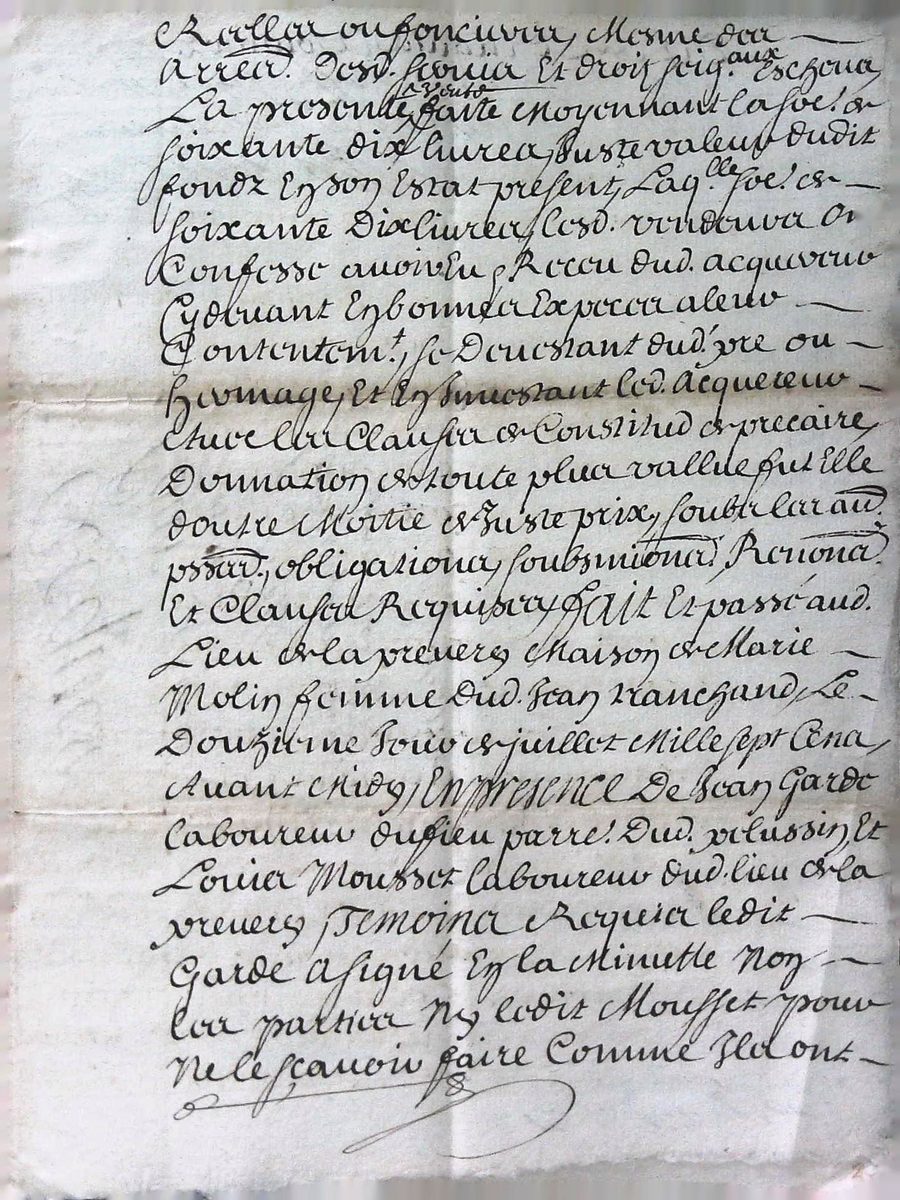 Reelles ou foncieres, Mesme des
Arrer. Desd. servis Et droit seig.aux Escheus,
La presente vente faite Moyennant la soe. de
soixante dix livres, Juste valeur dudit
fondz En son Estat present, Laq.lle soe. de
soixante Dix livres, lesd. vendeurs On
Confesse avoir Eu, Receu dud. acquereur
Cy devant En bonnes Expeces a leur
Contentem.t, se Devestant dud. pre ou
hermage, Et En Investant led. Acquereur
Avec les Clauses de Constitud de precaire,
Donnation de toute plus vallue fut Elle
d'outre Moitié de Juste prix, soubs les au.
pssad., obligations, soubsmiona. Renona.
Et Clauses Requises, fait Et passé aud.
Lieu de la prevery Maison de Marie
Molin femme dud. Jean tranchand, Le
Douzieme Jour de juillet Mille sept Cens,
Avant Midy, En presence De Jean Garde
laboureur du fieu parre. Dud. pelussin, Et
Louis Mousset laboureur dud. lieu de la
prevery, Temoins Requis ledit
Garde a signé En la Minutte Non
les parties Ny ledit Mousset pour
Ne le sçavoir faire Comme Ils ont